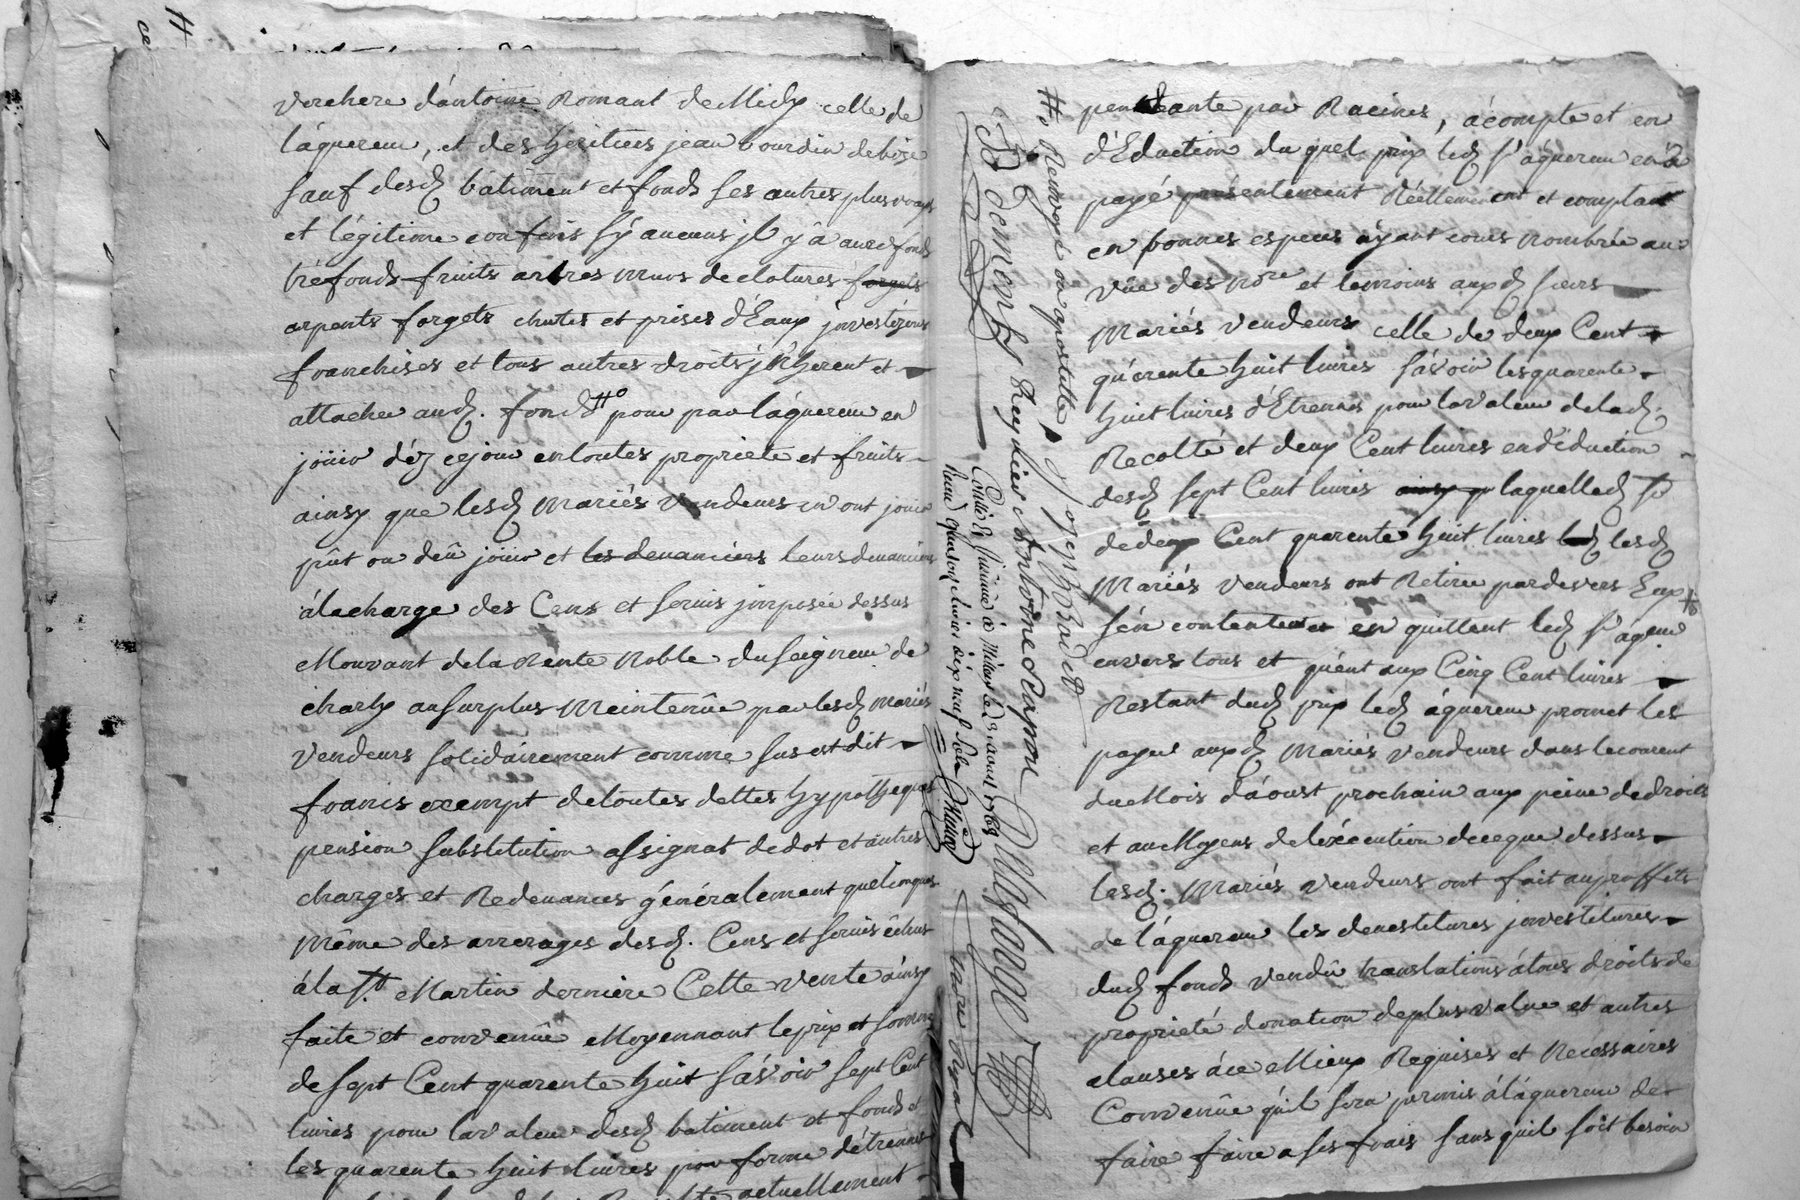 verchere d'antoine Romant de Midy celle de
l'áquereur, et des heritiers jean bourdin de bize
sauf desd. bâtiment et fonds ses autres plus vrays
et légitime confins s'y aucuns jl y â avec fonds
tréfonds fruits arbres murs de clotures
arpents forgets chutes et prises d'Eaux jnvestizons
franchises et tous autres droits jnherent et
attaches aud. fond #o pour par l'áquereur en
joüir déz ce jour en toutes propriete et fruits
ainsy que lesd. Mariés vendeurs en ont joüir
pût ou deû joüir et les devanciers leurs devanciers
á la charge des Cens et servis jmposée dessus
Mouvant de la Rente Noble du seigneur de
charly au surplus Meintenûe par lesd. Mariés
vendeurs solidairement comme sus est dit
francs exempt de toutes dettes hypotheques
pension substitution assignat de dot et autres
charges et Redevances généralement quelconques
Même des arrerages desd. Cens et servis échus
á la St. Martin derniere Cette vente áinsy
faite et convenûe Moyennant le prix et somme
de sept Cent quarente huit sávoir sept Cent
livres pour la valeur desd. batiment et fonds et
les quarente huit livres pour forme d'étrennes
actuellement
B Demont
Reynier Antoine Dapon
Meslage
Contrôlé à Millery le 2 aout 1768
Reçu quatre livres dix neuf sols
#o Renvoyé ou apostille
Joseph Bodet
Royal
pendante par Racines, ácompte et en
d'Eduction du quel prix led. sr áquereur en â
payé présentement Réellement et comptant
en bonnes especes áyant cours nombrée au
vûe des Nore et temoins auxd. sieurs
Mariés vendeurs celle de deux Cent
quárente huit livres sávoir les quarente
huit livres d'Etrennes pour la valeur de lad.
Recolté et deux Cent livres en d'éduction
desd. sept Cent livres laquelled. se
de deux Cent quarente huit livres lesd.
Mariés vendeurs ont Retirée par devers Eux
s'én contentent en quittent led. sr aqeur
envers tous et quént aux Cinq Cent livres
Restant dud. prix led. áquereur promet les
payer auxd. Mariés vendeurs dans le courent
du Mois d'áoust prochain aux peine de droits
et au Moyens de l'exécution de ce que dessus
lesd. Mariés vendeurs ont fait au proffets
de l'áquereur les devestitures jnvestitures
dud. fonds vendû translations á tous droits de
proprieté donation de plus value et autres
clauses á ce Mieux Requises et Necessaires
Convenûe quil sera permis á láquereur de
faire faire a ses frais sans quil soit besoin